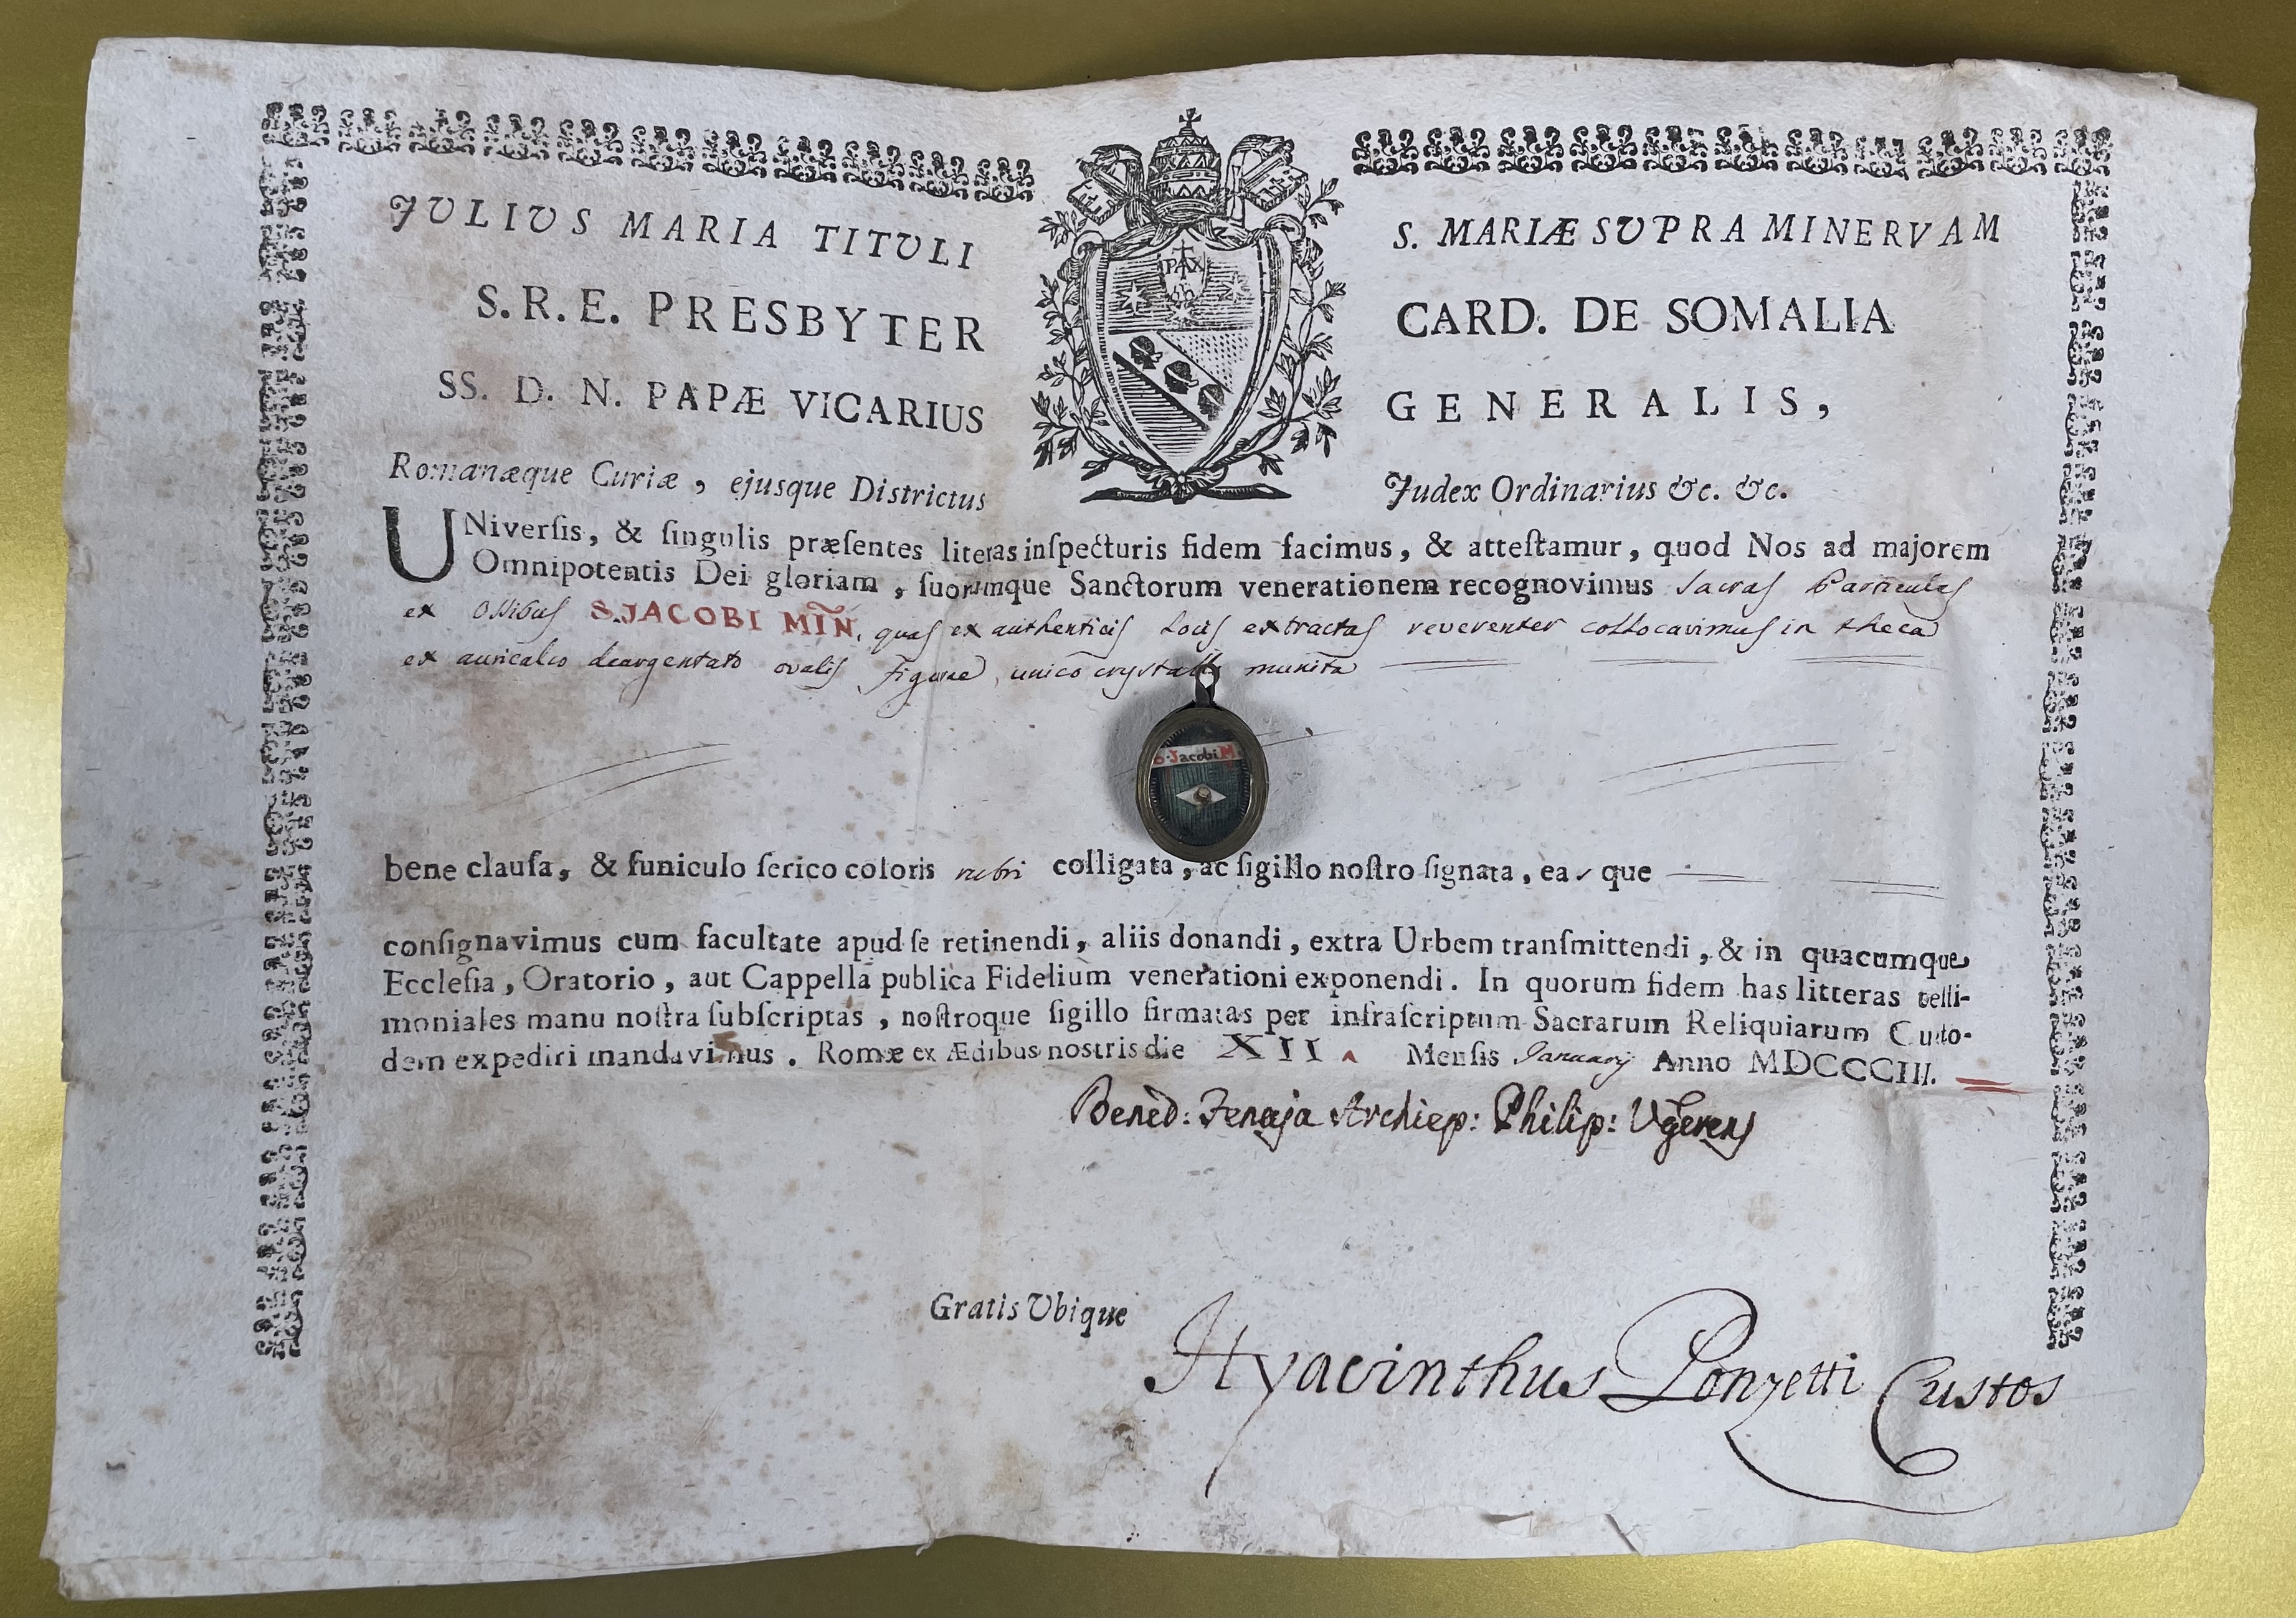 JULIUS MARIA TITULI S. MARIÆ SUPRA MINERVAM
PAX
S. R. E. PRESBYTER CARD. DE SOMALIA
SS. D. N. PAPÆ VICARIUS GENERALIS,
Romanæque Curiæ, ejusque Districtus Judex Ordinarius &c. &c.
UNiverſis, & ſingulis præſentes literas inſpecturis fidem facimus, & atteſtamur, quod Nos ad majorem
Omnipotentis Dei gloriam, ſuorumque Sanctorum venerationem recognovimus Sacras Particulas
ex Ossibus S. JACOBI MIÑ. quas ex authenticis Locis extractas reverenter collocavimus in theca
ex auricalco deargentato ovalis Figurae, unico crystallo munita
S. Jacobi M.
bene clauſa, & funiculo ſerico coloris rubri colligata, ac ſigillo noſtro ſignata, eaſque
conſignavimus cum facultate apud ſe retinendi, aliis donandi, extra Urbem tranſmittendi, & in quacumque
Eccleſia, Oratorio, aut Cappella publica Fidelium venerationi exponendi. In quorum fidem has litteras teſti-
moniales manu noſtra ſubſcriptas, noſtroque ſigillo firmatas per infraſcriptum Sacrarum Reliquiarum Cuſto-
dem expediri mandavimus. Romæ ex Ædibus noſtris die XII. Menſis Januarij Anno MDCCCIII.
Bened: Fenaja Archiep: Philip: Vgerens
Gratis Ubique
Hyacinthus Ponzetti Custos